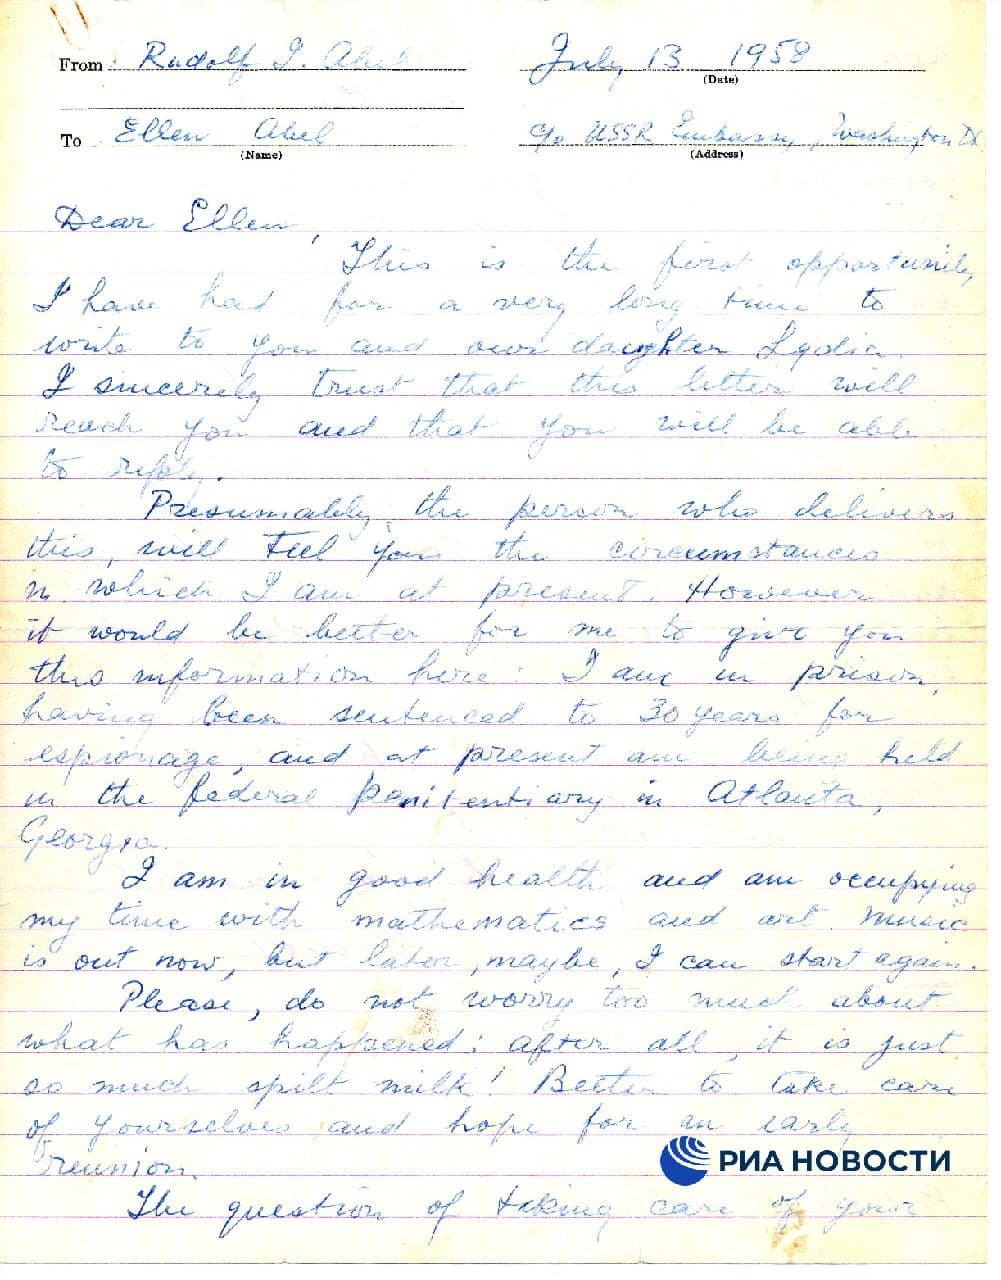 From Rudolf I. Abel
July 13 1958
(Date)
To Ellen Abel
(Name)
c/o USSR Embassy, Washington DC
(Address)
Dear Ellen,
This is the first opportunity
I have had for a very long time to
write to you and our daughter Lydia.
I sincerely trust that this letter will
reach you and that you will be able
to reply.
Presumably, the person who delivers
this, will tell you the circumstances
in which I am at present. However
it would be better for me to give you
this information here. I am in prison,
having been sentenced to 30 years for
espionage, and at present am being held
in the federal penitentiary in Atlanta,
Georgia.
I am in good health and am occupying
my time with mathematics and art. Music
is out now, but later, maybe, I can start again.
Please, do not worry too much about
what has happened; after all, it is just
so much spilt milk! Better to take care
of yourselves and hope for an early
reunion.
РИА НОВОСТИ
The question of taking care of your